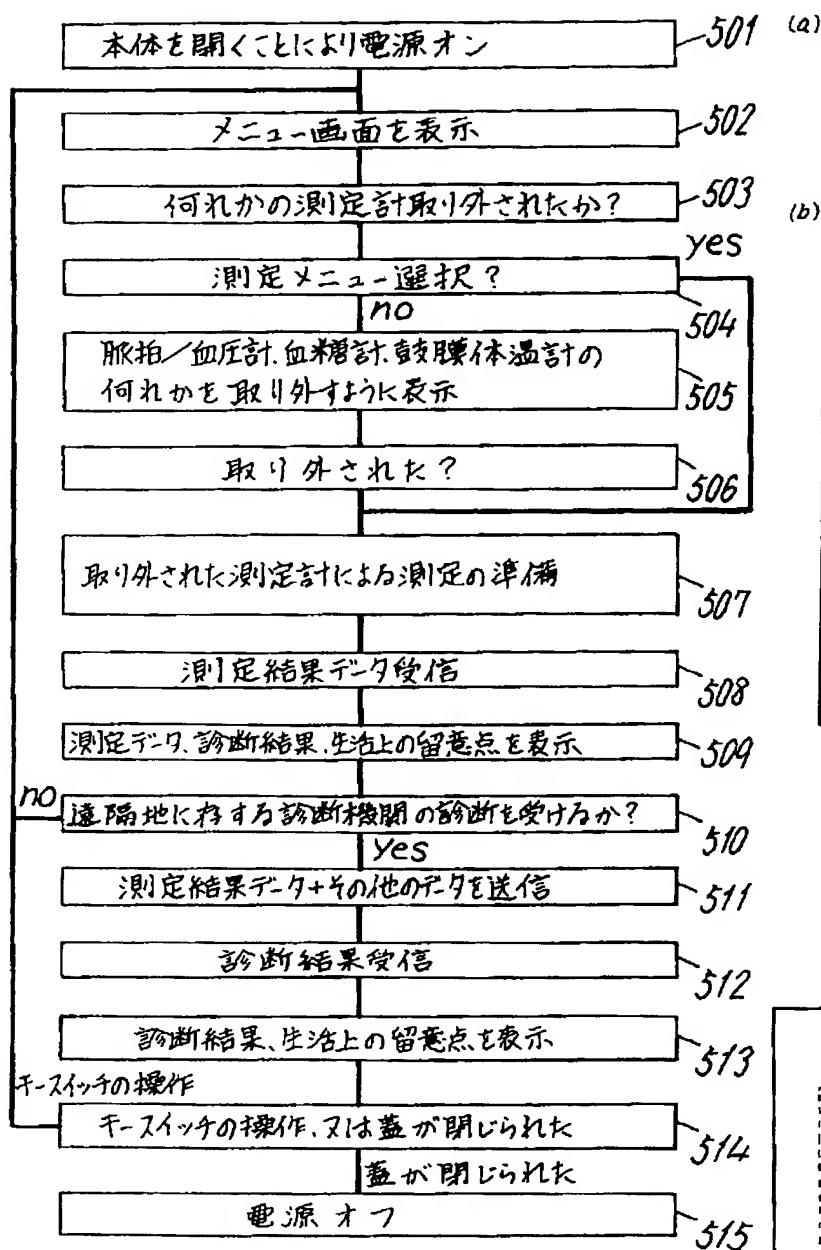 本体を開くことにより電源オン
501
(a)
メニュー画面を表示
502
何れかの測定計取り外されたか?
503
(b)
yes
測定メニュー選択?
504
no
脈拍/血圧計、血糖計、鼓膜体温計の
何れかを取り外すように表示
505
取り外された?
506
取り外された測定計による測定の準備
507
測定結果データ受信
508
測定データ、診断結果、生活上の留意点を表示
509
no
遠隔地に存する診断機関の診断を受けるか?
510
yes
測定結果データ+その他のデータを送信
511
診断結果受信
512
診断結果、生活上の留意点を表示
513
キースイッチの操作
キースイッチの操作、又は蓋が閉じられた
514
蓋が閉じられた
電源オフ
515